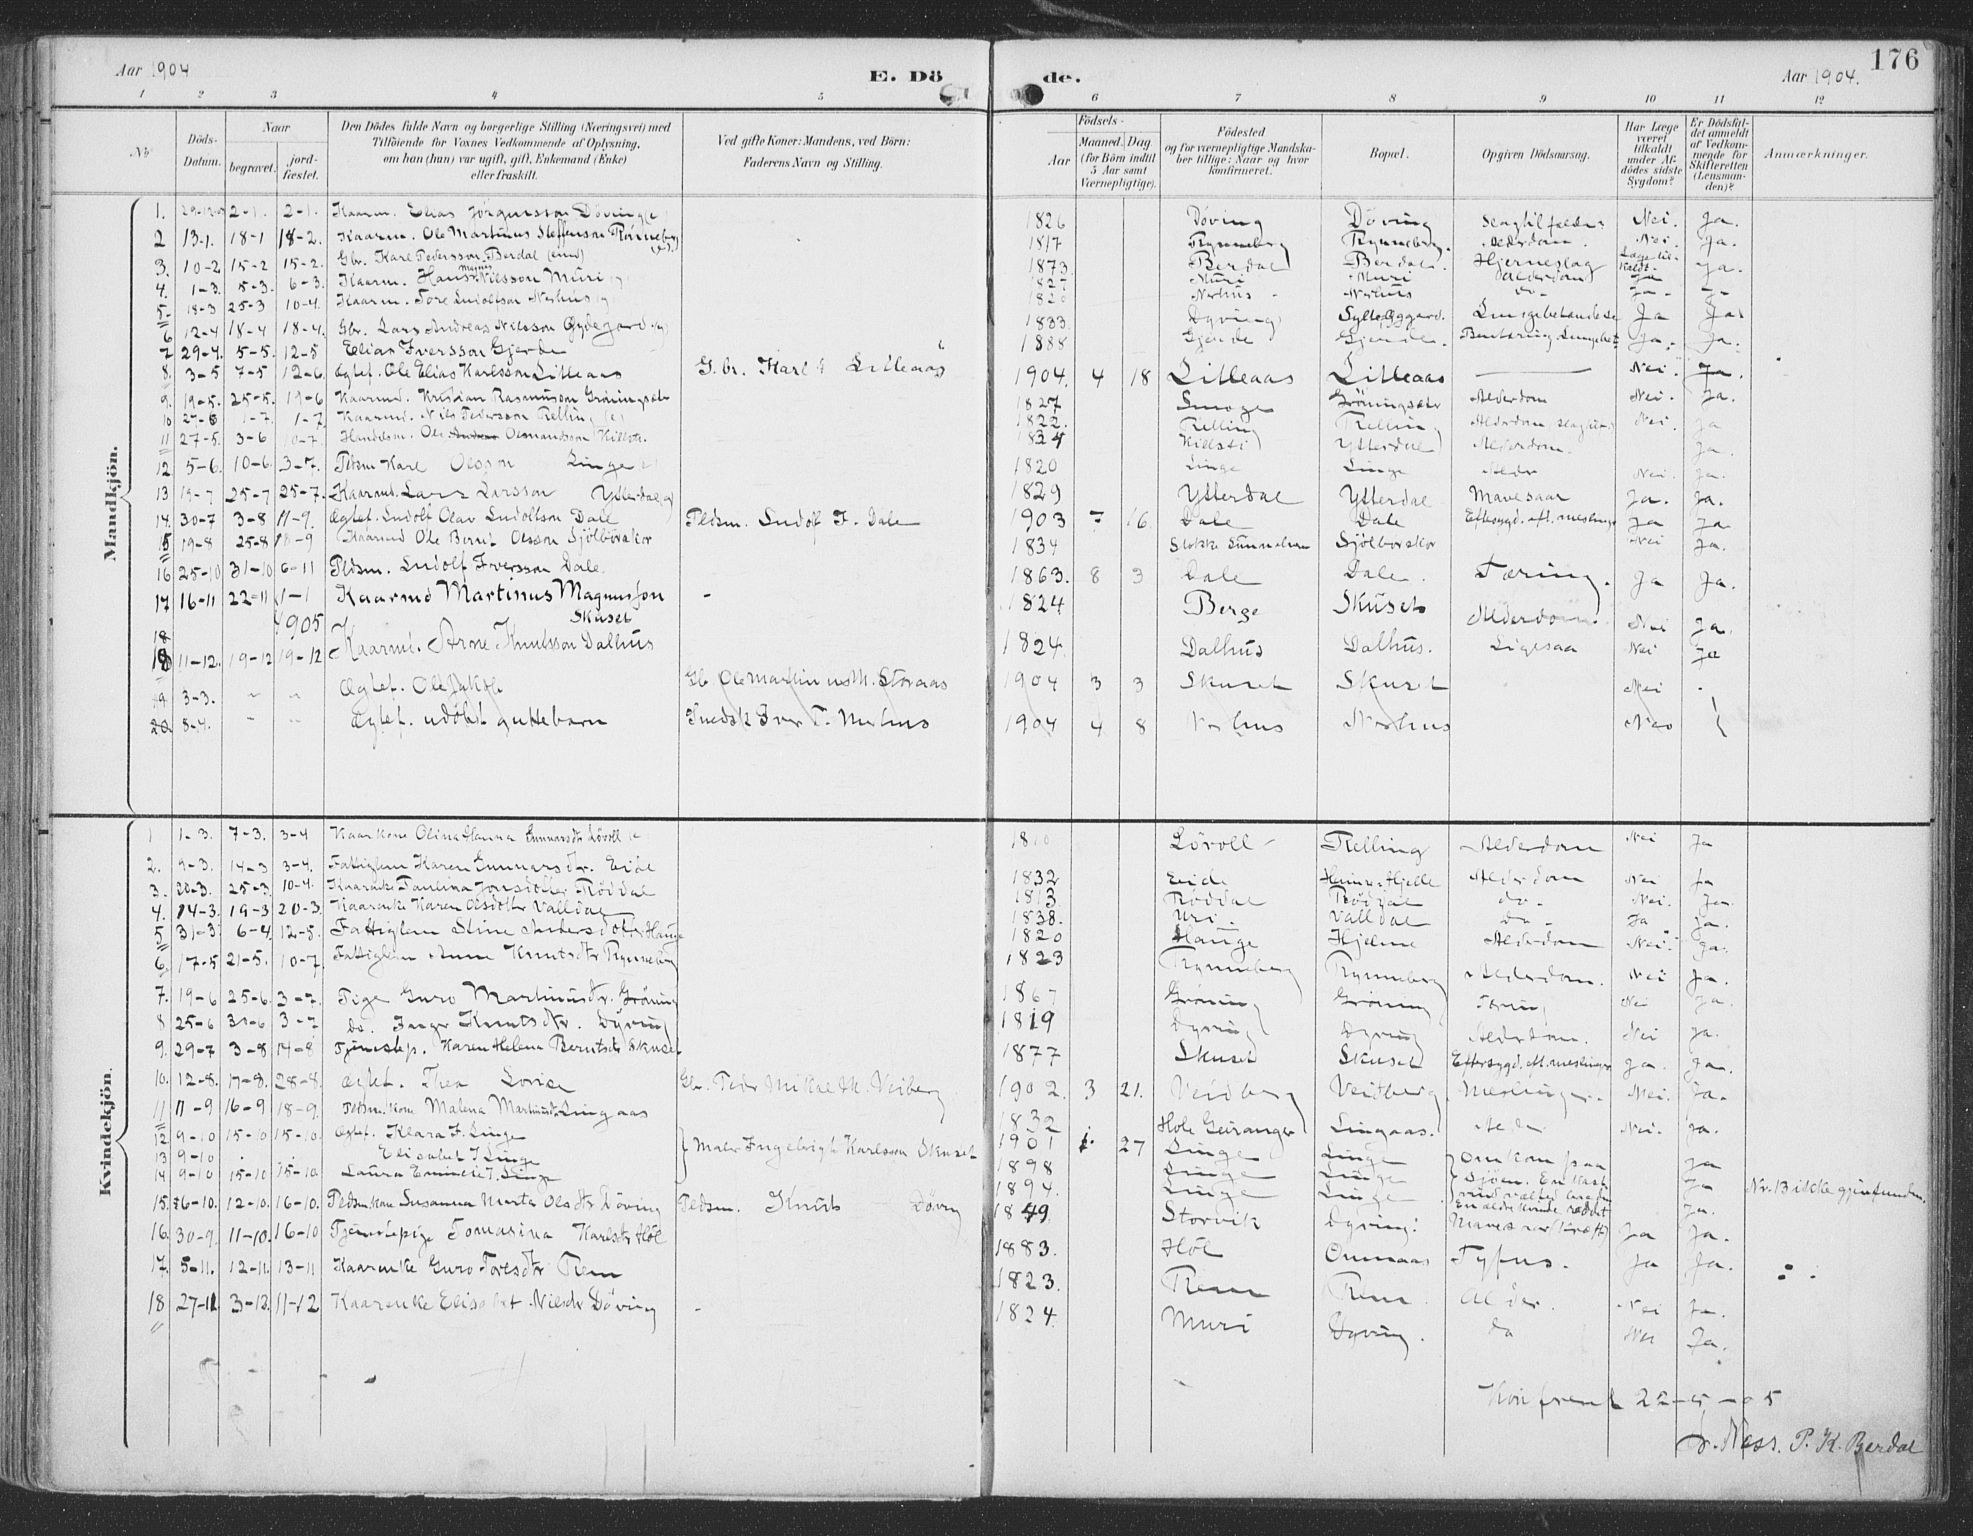 Aar 1904 E. Dö de. Aar 1904. 176
1 2 3 4 5 6 7 8 9 10 11 12
No
Döds-Datum.
Naar
begravet.
jord-fæstet.
Den Dödes fulde Navn og borgerlige Stilling (Næringsvei) med
Tilföiende for Voxnes Vedkommende af Oplysning,
om han (hun) var ugift, gift, Enkemand (Enke)
eller fraskilt.
Ved gifte Koner: Mandens, ved Börn:
Faderens Navn og Stilling.
Födsels-
Aar
Maaned. Dag
(for Börn indtil
5 Aar samt
Værnepligtige).
Födested
og for værnepligtige Mandska-
ber tillige: Naar og hvor
konfirmeret.
Bopæl.
Opgiven Dödsaarsag.
Har Læge
været
tilkaldt
under Af-
dödes sidste
Sygdom?
Er Dödsfal-
det anmeldt
af Vedkom-
mende for
Skifteretten
(Lensman-
den)?
Anmærkninger.
Mandkjön.
1. 2-1. 2-1. Kaarm. Elias Jörgensson Döving 1826 Döving Döving Nei. Ja.
2 13-1. 18-1 18-2. Kaarm. Ole Martinus Steffensson Rönneberg 1817 Rynneberg Rynneberg. Alderdom. Nei. Ja.
3. 10-2 15-2 15-2. Gbr. Karl Pedersson Berdal 1873 Berdal Berdal. Hjerneslag Ja.
4. 1-3. 5-3. 6-3. Kaarm. Hans Nilsson Muri 1827 Muri Muri Alderdom Ja
5. 18-3 25-3 10-4. Kaarm. Tore Ludolfson Nerhus Nerhus Nerhus do. Ja. Ja
6 12-4 18-4 18-4. Gbr. Lars Andreas Nilsson 1833 Dyving Sylte Ja Ja.
7 29-4. 5-5. 12-5 Elias Iversson Gjerde 1888 Gjerde Gjerde. Ja. Ja.
8. 3-5 7-5 12-6. Ægtef. Ole Elias Karlsson Litleaas G.br. Karl Litleaas 1904. 4 18 Litleaas Litleaas Nei. Ja.
9. 19-5. 25-5. 19-6 Kaarmd. Kristian Rasmusson Gröningsæter 1827 Smoge Gröningsæter Alderdom Nei. Ja.
10 27-6 1-7. 1-7. Kaarmd. Nils Pedersson Relling 1822. Relling Relling Alderdom Nei. Ja
11 27-5. 3-6 10-7. Handelsm. Ole Osmundsson 1824 Ytterdal Alderdom. Ja.
12. 5-6. 10-6. 3-7. Pldsm Karl Olsson Linge 1820 Linge Linge Nei. Ja.
13 19-7 25-7 25-7. Kaarmd. Lars Larsson Ytterdal 1829 Ytterdal Ytterdal Mavesaar Ja. Ja.
14. 30-7 3-8 11-9. Ægtef. Ludolf Olav Ludolfson Dale Pldsm. Ludolf I. Dale 1903 7 16 Dale Dale Eftersygd. aft. meslinger Ja Ja
15 19-8 25-8 18-9 Kaarmd Ole Bernt Olsson Sjölborskor 1834 Stokke Sunnelven Sjölborskor Nei Ja.
16 25-10 31-10 6-11 Pldsm. Ludolf Iversson Dale. 1863. 8 3 Dale Dale. Tæring. Ja Ja.
17 16-11 22-11 1-1 1905 Kaarmd Martinus Magnusson Skuset - 1824 Berge Skuset Alderdom. Nei Ja.
18 11-12. 19-12 19-12 Kaarmd. Arne Knutsson Dalhus 1824. Dalhus Dalhus. Ligesaa Nei Ja
19 3-3. Ægtef. Ole Jakob Gb Ole Martinus M. Storaas 1904 3 3 Skuset Skuset Nei
20 8-4. Ægtef. udöbt guttebarn Iver P. Nerhus 1904 4 8 Nerhus Nerhus Nei
Kvindekjön.
1 1-3. 7-3. 3-4 Kaarkone Olina Hanna Gunnarsdtr Lövoll Lövoll Relling Alderdom Nei Ja
2. 9-3. 14-3 3-4. Fattiglem Karen Gunnarsdtr. Eide 1832 Eide Alderdom Nei Ja
3. 20-3. 25-3 10-4. Kaarenke Paulina Jonsdotter Röddal 1813 Röddal Röddal do. Nei. Ja.
4. 14-3. 19-3 20-3. Kaarenke Karen Olsdotter Valldal 1838. Uri. Valldal do. Ja Ja.
5 31-3 6-4. 12-5. Fattiglem Stine Andersdotter Hauge 1820 Hauge Hjelme Alderdom Nei. Ja.
6. 17-5 21-5. 10-7. Fattiglem Anne Knutsdtr Rynneberg 1823 Rynneberg Rynneberg Alderdom. Nei Ja.
7. 19-6 25-6. 3-7. Pige Guro Martinusdtr. Gröning 1867 Gröning Gröning Tæring Nei Ja.
8 25-6 3-7 Do. Inger Knutsdtr. Dyving 1819 Dyving Dyving Alderdom. Nei Ja.
9. 29-7 3-8 14-8 Karen Helena Berntsdtr Skuset 1877 Skuset Skuset Eftersygd. aft. meslinger Ja. Ja.
10. 12-8. 17-8. 28-8. Ægtef. Thea Lovise Gbr. Peder Mikal M. Veiberg 1902. 3 21. Veidberg Veidberg Meslinger. Nei. Ja.
11 11-9 16-9 18-9. Pldsm. kone Malena Martinusdtr Lingaas 1832 Hole Geiranger Lingaas. Alder Nei. Ja.
12 9-10 15-10 15-10. Ægtef. Klara I. Linge 1901 1. 27 Linge Linge Omkom paa Ja
13 9-10 Elisabet I Linge Maler Ingebrigt Karlsson Skuset 1898 Linge Linge Sjöen. En kast Ja Nr. 13 ikke gjenfunden.
14 9-10 15-10 15-10 Laura Emilie I. Linge 1894. Linge Linge vind Ja.
15. 6-10. 12-10. 16-10. Pldsm. kone Susanna Marta Olsdtr Döving Pldsm. Knut Döving 1849. Storvik Dyving. Ja Ja.
16. 30-9. 11-10. 16-10 Tjenestepige Tomasina Karlsdtr Höl 1883. Höl Onmaas Tyfus. Ja Ja.
17. 5-11. 12-11. 13-11 Kaarenke Guro Toresdtr Rem 1823. Rem Rem. Alder. Nei Ja.
18 27-11 3-12. 11-12 Kaarenke Elisabet Nilsdr Döving - 1824. Muri Dyving. do Nei Ja.
Konfereret 22-5-05
P. K. Berdal